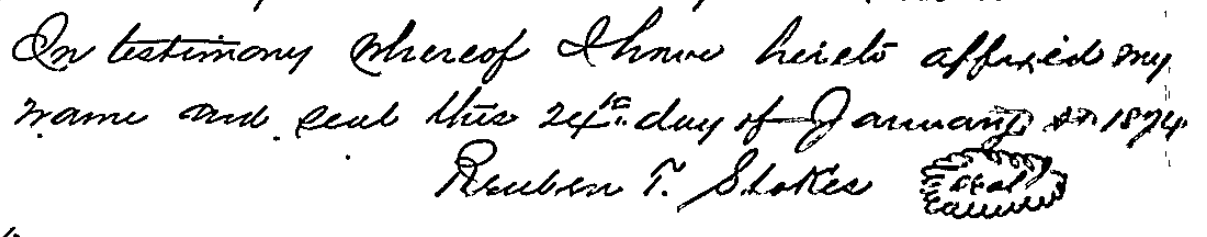 In testimony whereof I have hereto affixed my
name and seal this 24th day of January 1874
Reuben T. Stokes seal